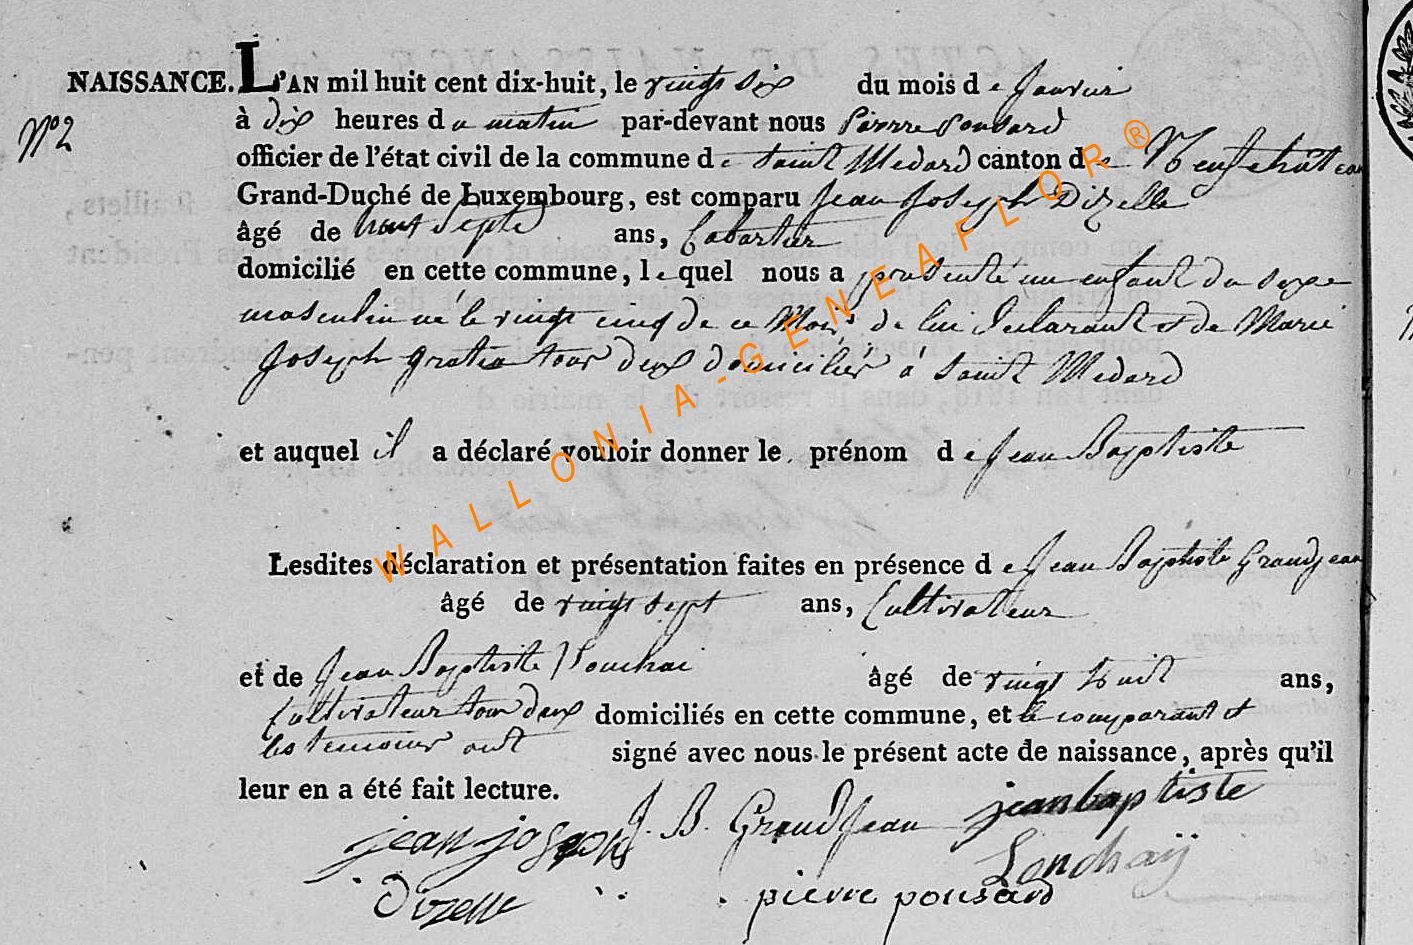 NAISSANCE. L'AN mil huit cent dix-huit, le vingt six du mois de Janvier
N° 2
à dix heures du matin par-devant nous Pierre Ponsard
officier de l'état civil de la commune de Saint Medard canton de Neufchâteau
Grand-Duché de Luxembourg, est comparu Jean Joseph Dizelle
âgé de trent sept ans, Cabartier
domicilié en cette commune, lequel nous a presenté un enfant du sexe
masculin né le vingt cinq de ce Mois de lui Declarant et de Marie
Joseph tous deux domiciliés à Saint Medard
et auquel il a déclaré vouloir donner le prénom de Jean Baptiste
Lesdites déclaration et présentation faites en présence de Jean Baptiste Grandjean
âgé de vingt sept ans, Cultivateur
et de Jean Baptiste Lonchai âgé de vingt huit ans,
Cultivateur tous deux domiciliés en cette commune, et le comparant et
les temoins ont signé avec nous le présent acte de naissance, après qu'il
leur en a été fait lecture.
jean joseph J. B. Grandjean jean baptiste
dizelle pierre ponsard Lonchaÿ
WALLONIA-GENEAFLOR®